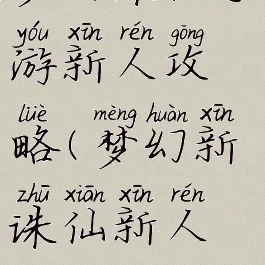 yóu xīn rén gōng
游新人攻
lüè mèng huàn xīn
略(梦幻新
zhū xiān xīn rén
诛仙新人